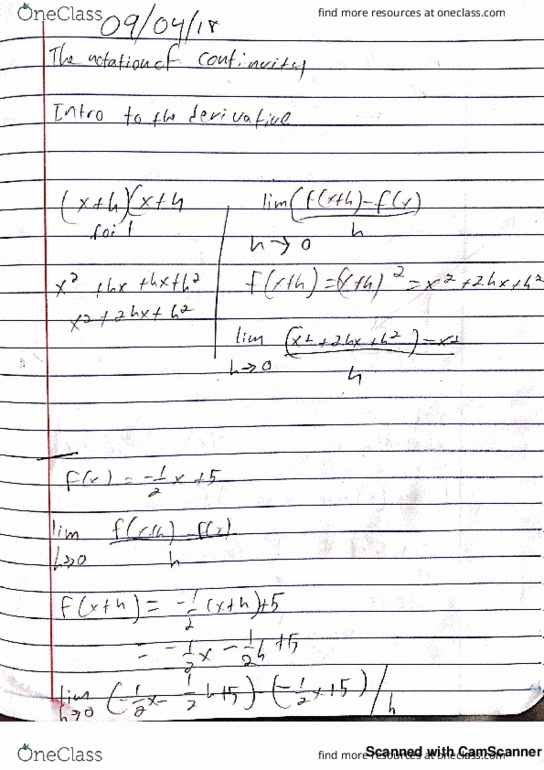 OneClass
find more resources at oneclass.com
09/04/18
The notation of continuity
Intro to the derivative
(x+h)(x+h
foil
x² + hx + hx + h²
x² + 2hx + h²
lim (f(x+h) - f(x)
h→0 h
f(x+h) = (x+h)² = x² + 2hx + h²
lim (x² + 2hx + h²) - x²
h→0 h
f(x) = -1/2 x + 5
lim f(x+h) - f(x)
h→0 h
F(x+h) = -1/2 (x+h) + 5
= -1/2 x - 1/2 h + 5
lim (-1/2 x - 1/2 h + 5) - (-1/2 x + 5) / h
h→0
OneClass
find more resources at oneclass.com
Scanned with CamScanner